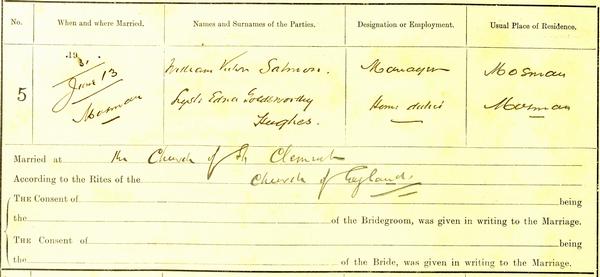 No. When and where Married. Names and Surnames of the Parties. Designation or Employment. Usual Place of Residence.
1931.
June 13
Mosman
5
William Victor Salmon. Manager Mosman
Edna Goldsworthy Home duties Mosman
Hughes.
Married at the Church of St Clement
According to the Rites of the Church of England
THE CONSENT of being
the of the Bridegroom, was given in writing to the Marriage.
THE CONSENT of being
the of the Bride, was given in writing to the Marriage.